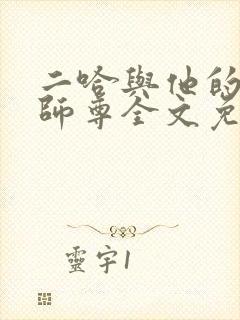 二哈與他的
師尊全文免
靈宇1